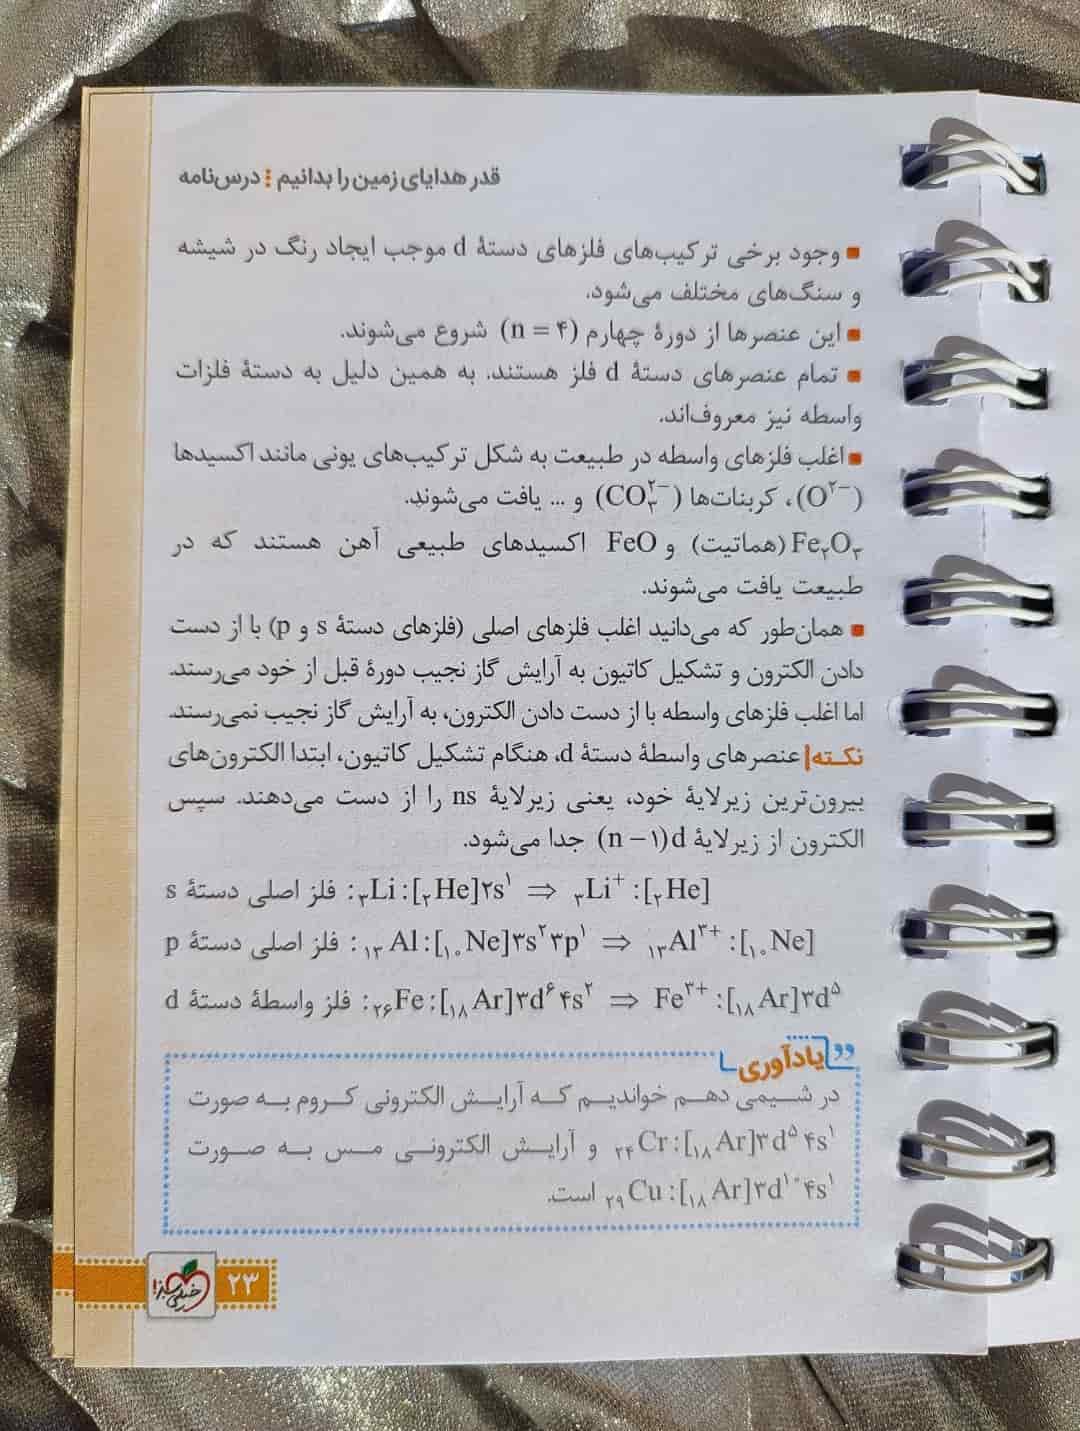 قدر هدایای زمین را بدانیم : درس‌نامه
■ وجود برخی ترکیب‌های فلزهای دستهٔ d موجب ایجاد رنگ در شیشه
و سنگ‌های مختلف می‌شود.
■ این عنصرها از دورهٔ چهارم (n = ۴) شروع می‌شوند.
■ تمام عنصرهای دستهٔ d فلز هستند. به همین دلیل به دستهٔ فلزات
واسطه نیز معروف‌اند.
■ اغلب فلزهای واسطه در طبیعت به شکل ترکیب‌های یونی مانند اکسیدها
(O²⁻)، کربنات‌ها (CO₃²⁻) و ... یافت می‌شوند.
Fe₂O₃ (هماتیت) و FeO اکسیدهای طبیعی آهن هستند که در
طبیعت یافت می‌شوند.
■ همان‌طور که می‌دانید اغلب فلزهای اصلی (فلزهای دستهٔ s و p) با از دست
دادن الکترون و تشکیل کاتیون به آرایش گاز نجیب دورهٔ قبل از خود می‌رسند.
اما اغلب فلزهای واسطه با از دست دادن الکترون، به آرایش گاز نجیب نمی‌رسند.
نکته| عنصرهای واسطهٔ دستهٔ d، هنگام تشکیل کاتیون، ابتدا الکترون‌های
بیرون‌ترین زیرلایهٔ خود، یعنی زیرلایهٔ ns را از دست می‌دهند. سپس
الکترون از زیرلایهٔ (n − ۱)d جدا می‌شود.
فلز اصلی دستهٔ s : ₃Li : [₂He]۲s¹ ⇒ ₃Li⁺ : [₂He]
فلز اصلی دستهٔ p : ₁₃Al : [₁₀Ne]۳s²۳p¹ ⇒ ₁₃Al³⁺ : [₁₀Ne]
فلز واسطهٔ دستهٔ d : ₂₆Fe : [₁₈Ar]۳d⁶۴s² ⇒ Fe³⁺ : [₁₈Ar]۳d⁵
یادآوری
در شیمی دهم خواندیم که آرایش الکترونی کروم به صورت
₂₄Cr : [₁₈Ar]۳d⁵۴s¹ و آرایش الکترونی مس به صورت
₂₉Cu : [₁₈Ar]۳d¹⁰۴s¹ است.
خیلی سبز
۲۳